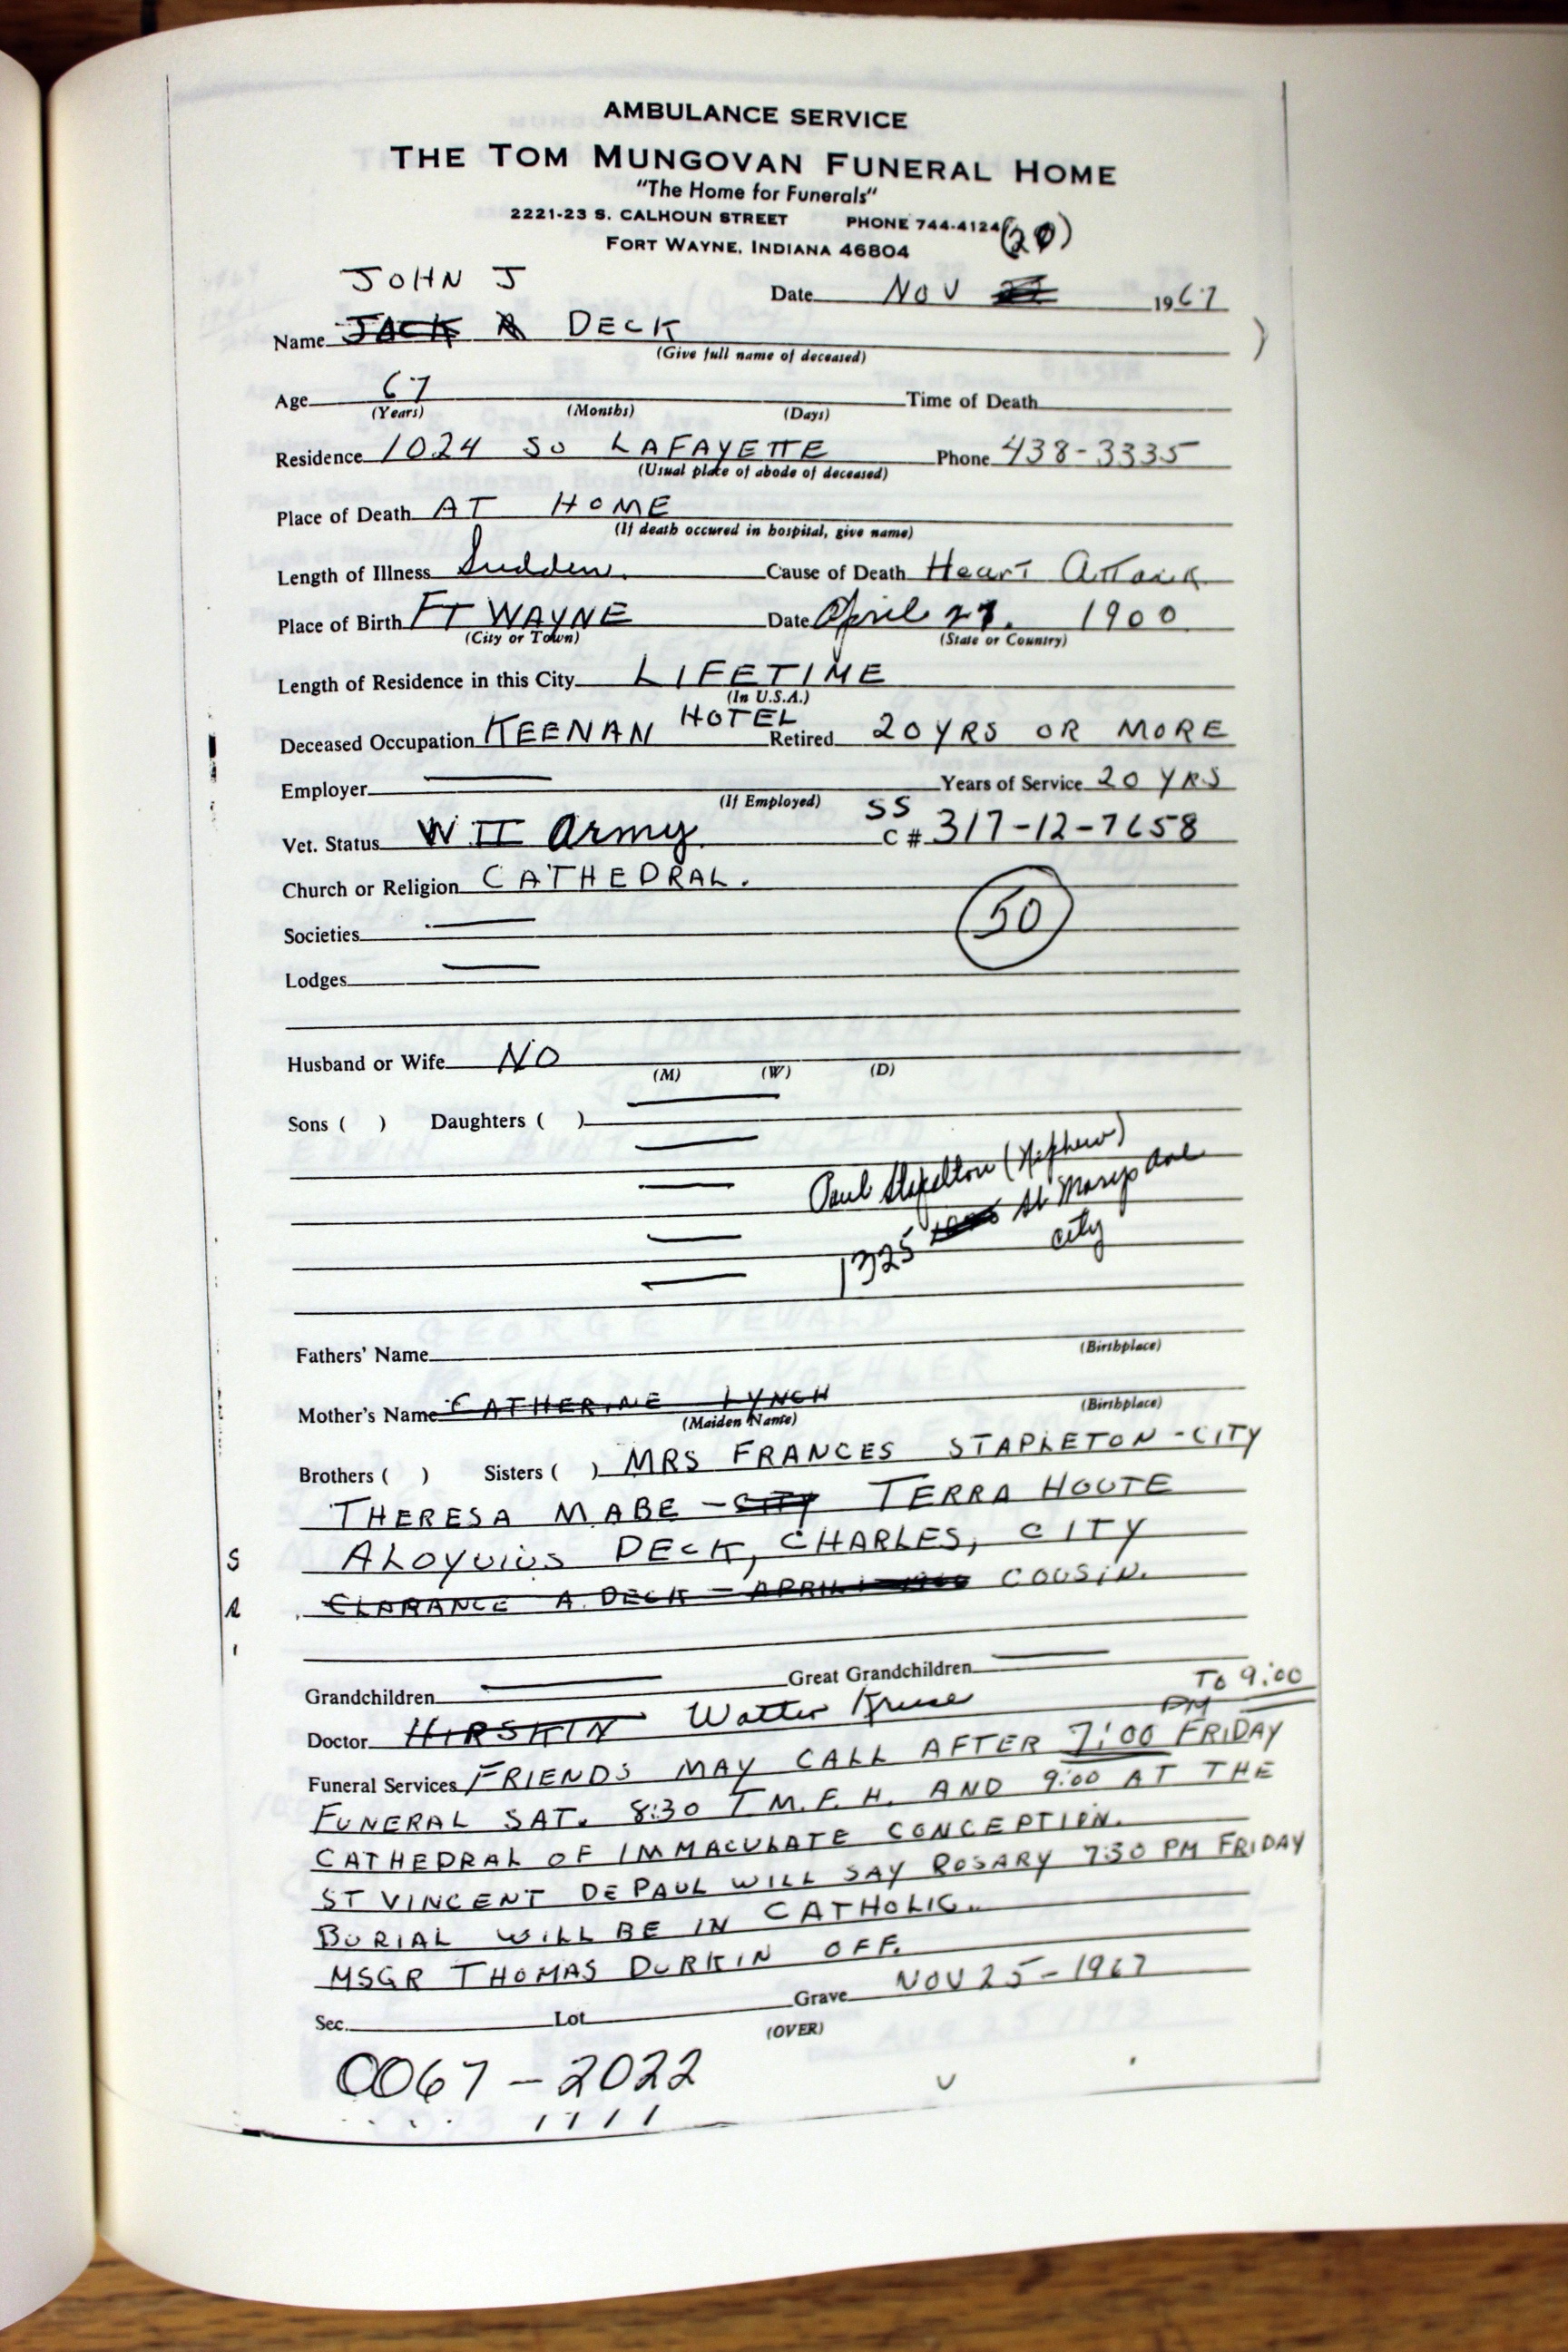 AMBULANCE SERVICE
THE TOM MUNGOVAN FUNERAL HOME
"The Home for Funerals"
2221-23 S. CALHOUN STREET PHONE 744-4124
FORT WAYNE, INDIANA 46804
JOHN J
Date NOV 1967
Name JACK R DECK
(Give full name of deceased)
Age 67 Time of Death
(Years) (Months) (Days)
Residence 1024 SO LAFAYETTE Phone 438-3335
(Usual place of abode of deceased)
Place of Death AT HOME
(If death occured in hospital, give name)
Length of Illness Sudden. Cause of Death Heart Attack
Place of Birth FT WAYNE Date April 27. 1900
(City or Town) (State or Country)
Length of Residence in this City LIFETIME
(In U.S.A.)
Deceased Occupation KEENAN HOTEL Retired 20 YRS OR MORE
Employer Years of Service 20 YRS
(If Employed)
Vet. Status W II Army SS C# 317-12-7658
Church or Religion CATHEDRAL.
50
Societies
Lodges
Husband or Wife NO
(M) (W) (D)
Sons ( ) Daughters ( )
Paul Stapelton (Nephew)
1325 St Marys Ave
city
Fathers' Name
(Birthplace)
Mother's Name CATHERINE LYNCH
(Maiden Name) (Birthplace)
Brothers ( ) Sisters ( ) MRS FRANCES STAPLETON - CITY
THERESA MABE - CITY TERRA HOUTE
ALOYUIUS DECK, CHARLES, CITY
CLARANCE A. DECK - APRIL COUSIN.
Grandchildren Great Grandchildren
TO 9:00
Doctor HIRSKIN Walter Kruse PM
Funeral Services FRIENDS MAY CALL AFTER 7:00 FRIDAY
FUNERAL SAT. 8:30 T M. F. H. AND 9:00 AT THE
CATHEDRAL OF IMMACULATE CONCEPTION.
ST VINCENT DEPAUL WILL SAY ROSARY 7:30 PM FRIDAY
BURIAL WILL BE IN CATHOLIC.
MSGR THOMAS DURKIN OFF.
Sec. Lot Grave NOV 25 - 1967
(OVER)
0067 - 2022